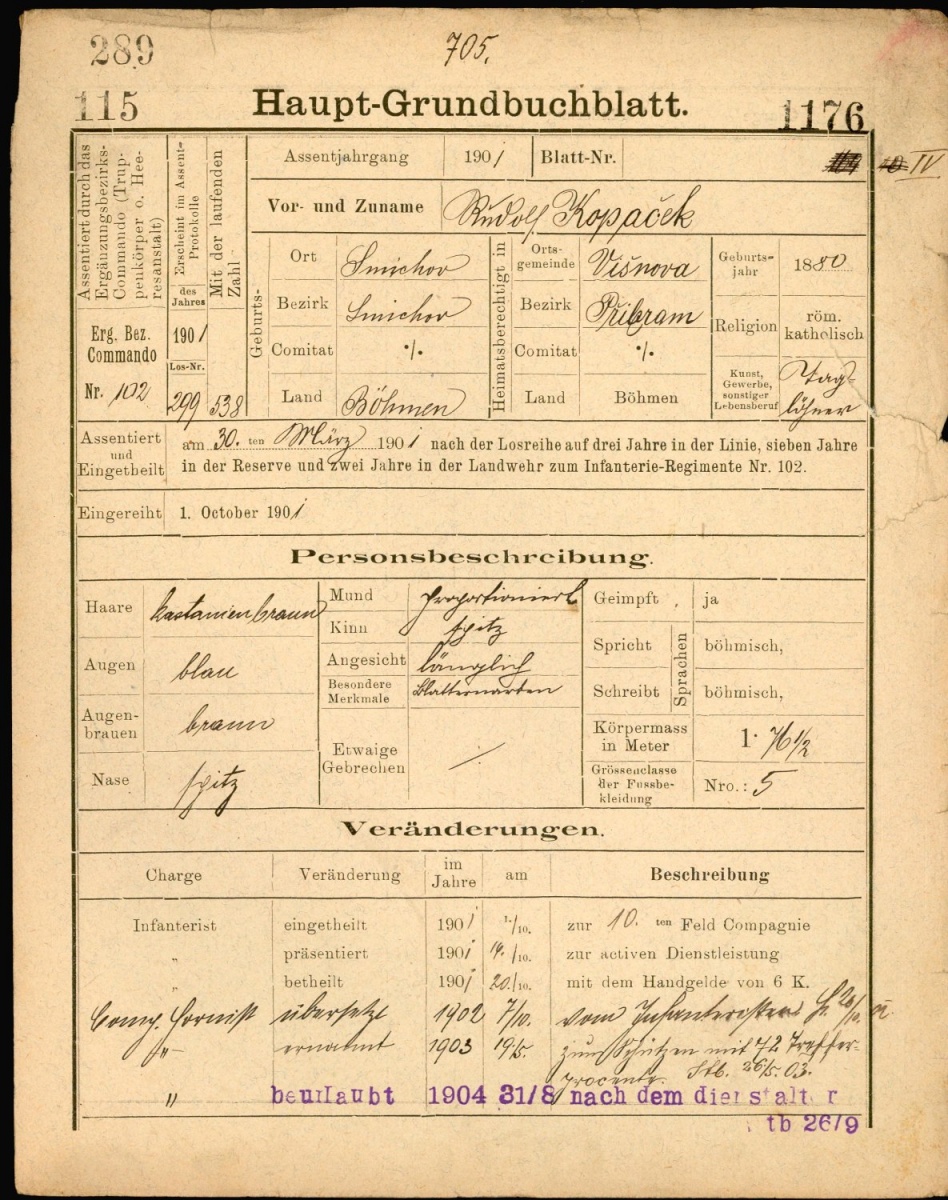 289
705.
115
Haupt-Grundbuchblatt.
1176
IV
Assentiert durch das Ergänzungsbezirks-Commando (Truppenkörper o. Heeresanstalt)
Erscheint im Assent-Protokolle
des Jahres
Mit der laufenden Zahl
Erg. Bez. Commando
Nr. 102
1901
Los-Nr.
299
538
Assentjahrgang 1901 Blatt-Nr.
Vor- und Zuname Rudolf Kopaček
Geburts-
Ort Smichov
Bezirk Smichov
Comitat ·/.
Land Böhmen
Heimatsberechtigt in
Ortsgemeinde Višnova
Bezirk Přibram
Comitat ·/.
Land Böhmen
Geburtsjahr 1880
Religion röm. katholisch
Kunst, Gewerbe, sonstiger Lebensberuf Taglöhner
Assentiert und Eingetheilt
am 30. ten März 1901 nach der Losreihe auf drei Jahre in der Linie, sieben Jahre
in der Reserve und zwei Jahre in der Landwehr zum Infanterie-Regimente Nr. 102.
Eingereiht 1. October 1901
Personsbeschreibung.
Haare kastanienbraun
Augen blau
Augenbrauen braun
Nase spitz
Mund proportioniert
Kinn spitz
Angesicht länglich
Besondere Merkmale Blatternarben
Etwaige Gebrechen ./.
Geimpft ja
Sprachen
Spricht böhmisch,
Schreibt böhmisch,
Körpermass in Meter 1· 76 1/2
Grössenclasse der Fussbekleidung Nro.: 5
Veränderungen.
Charge Veränderung im Jahre am Beschreibung
Infanterist eingetheilt 1901 1./10. zur 10. ten Feld Compagnie
„ präsentiert 1901 14./10. zur activen Dienstleistung
„ betheilt 1901 20./10. mit dem Handgelde von 6 K.
Comp. Hornist übersetzt 1902 7/10. vom Infanteristen
„ ernannt 1903 19/5. zum Schützen mit 72 Treffer-
procente. Stb. 26/5. 03.
„ beurlaubt 1904 31/8 nach dem
tb 26/9